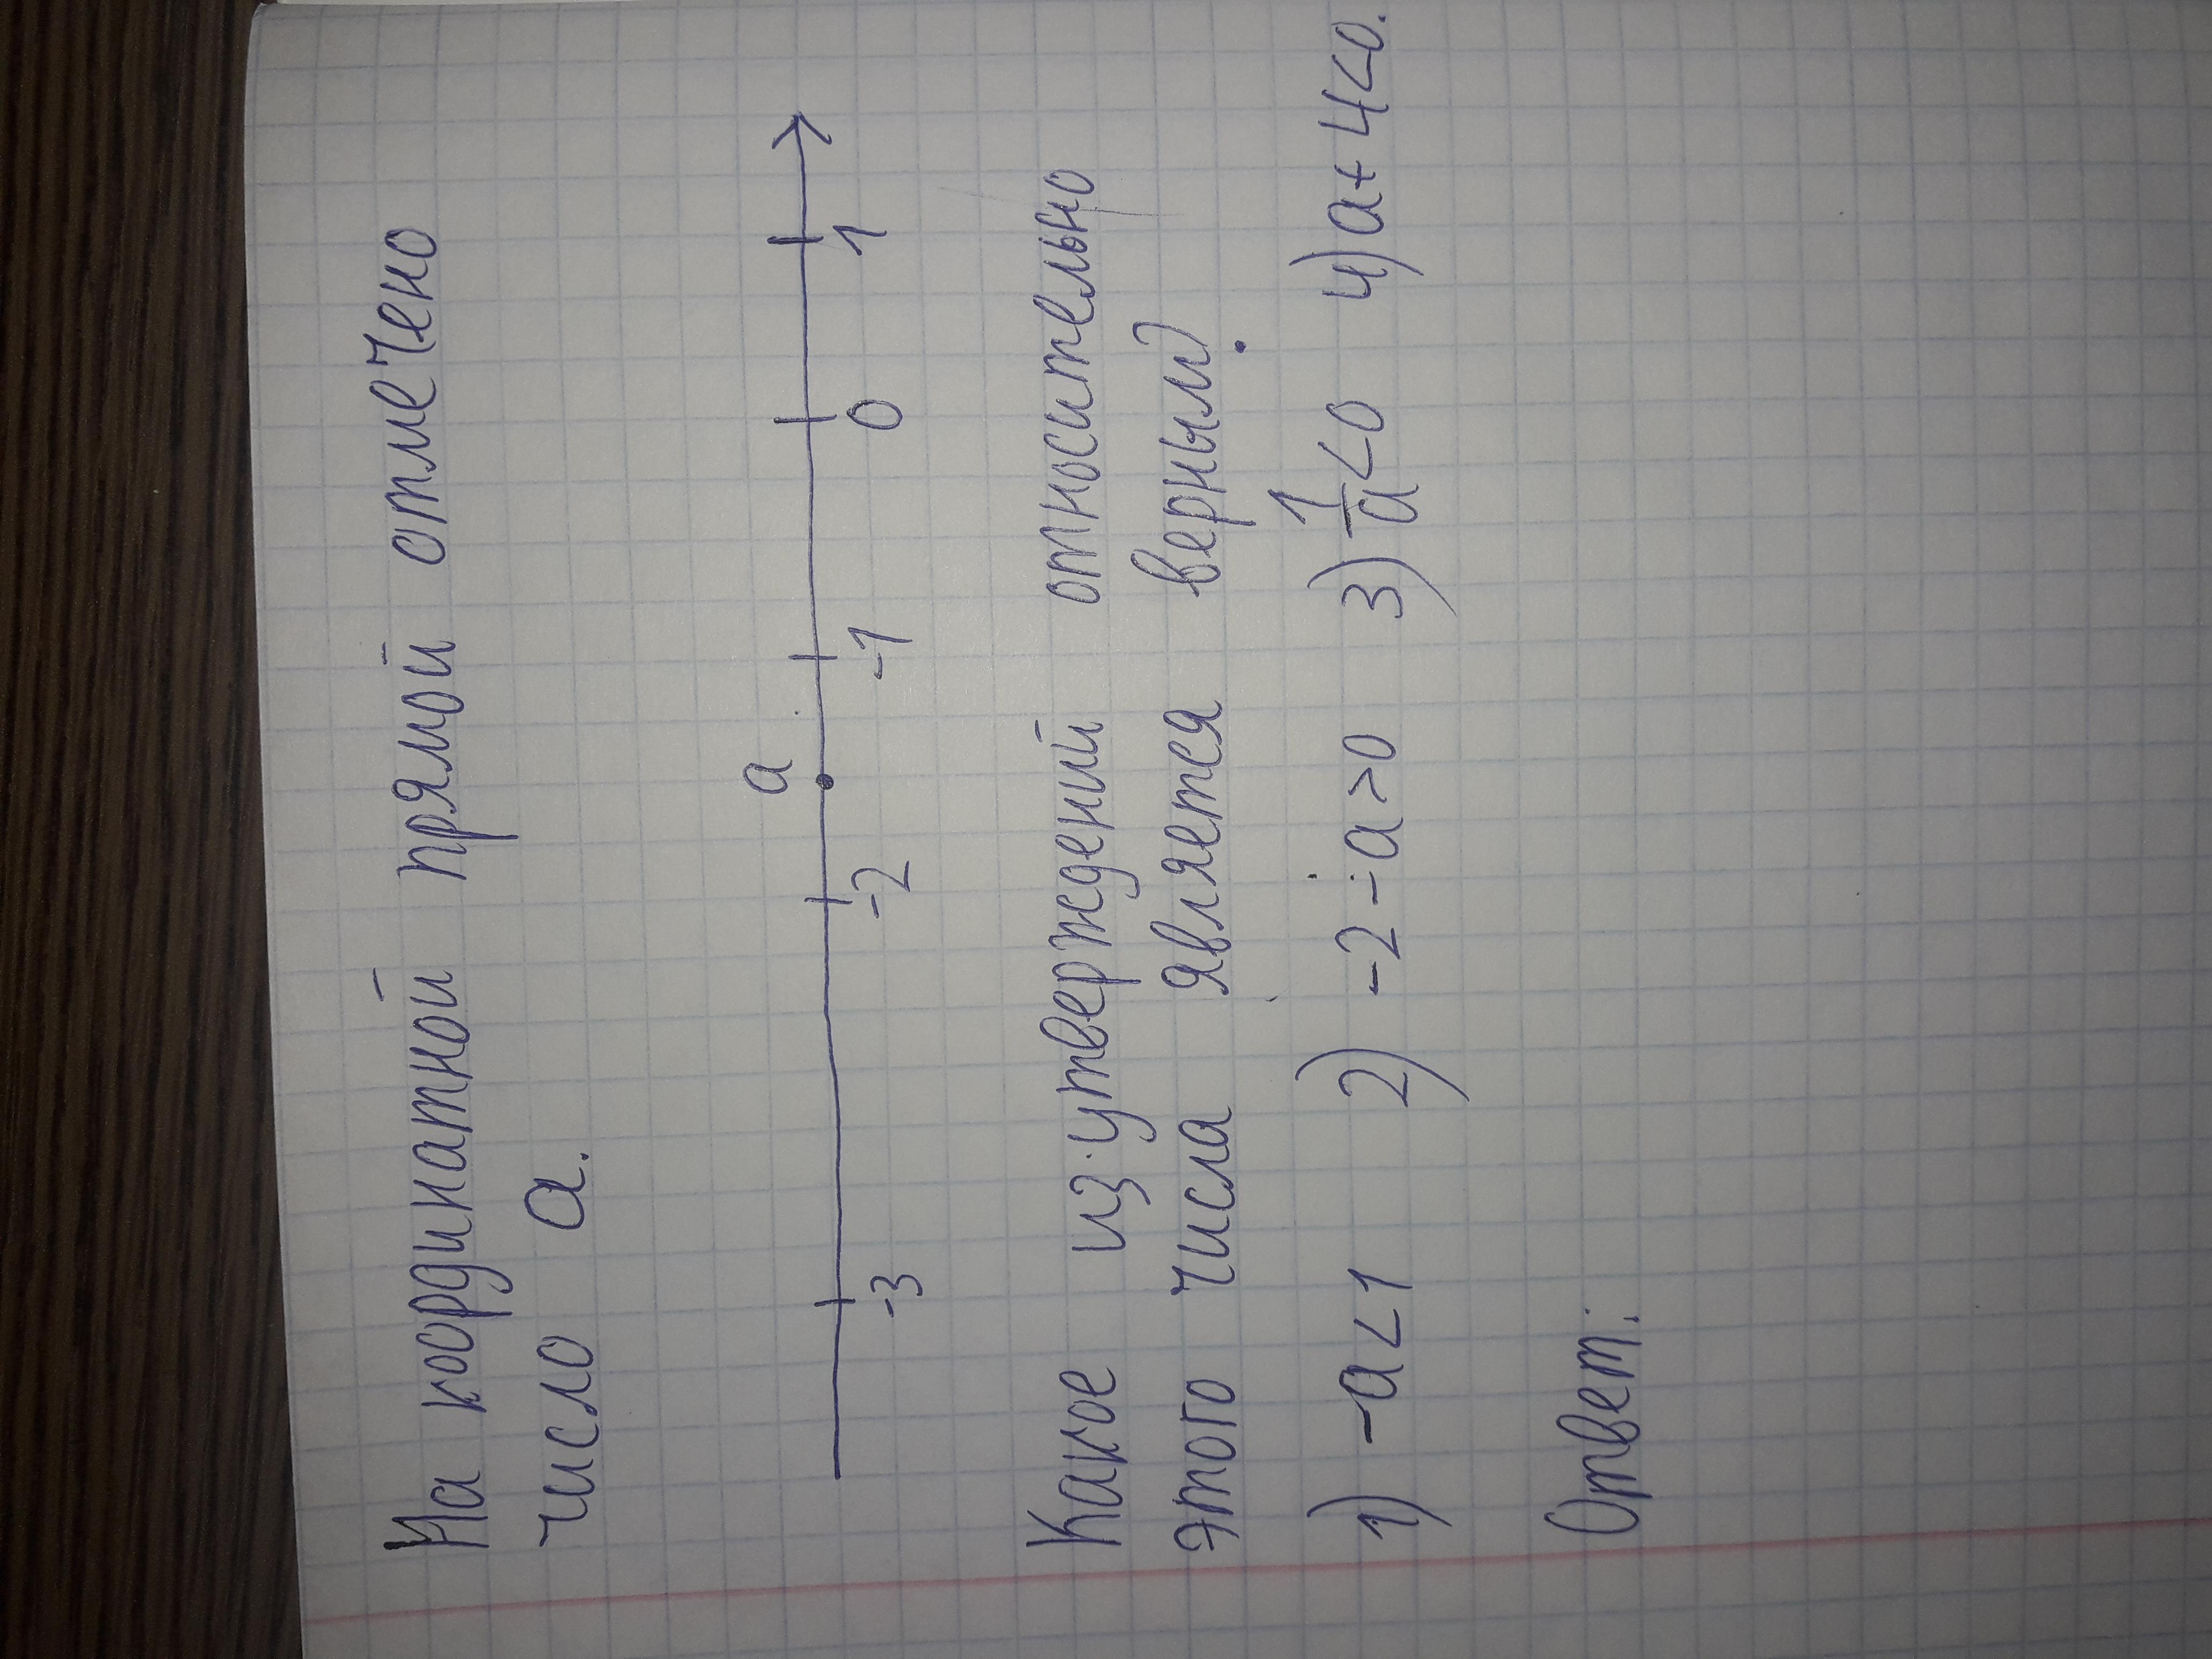 На координатной прямой отмечено
число a.
a
-3 -2 -1 0 1
Какое из утверждений относительно
этого числа является верным?
1) -a<1 2) -2-a>0 3) 1/a<0 4) a+4<0.
Ответ: